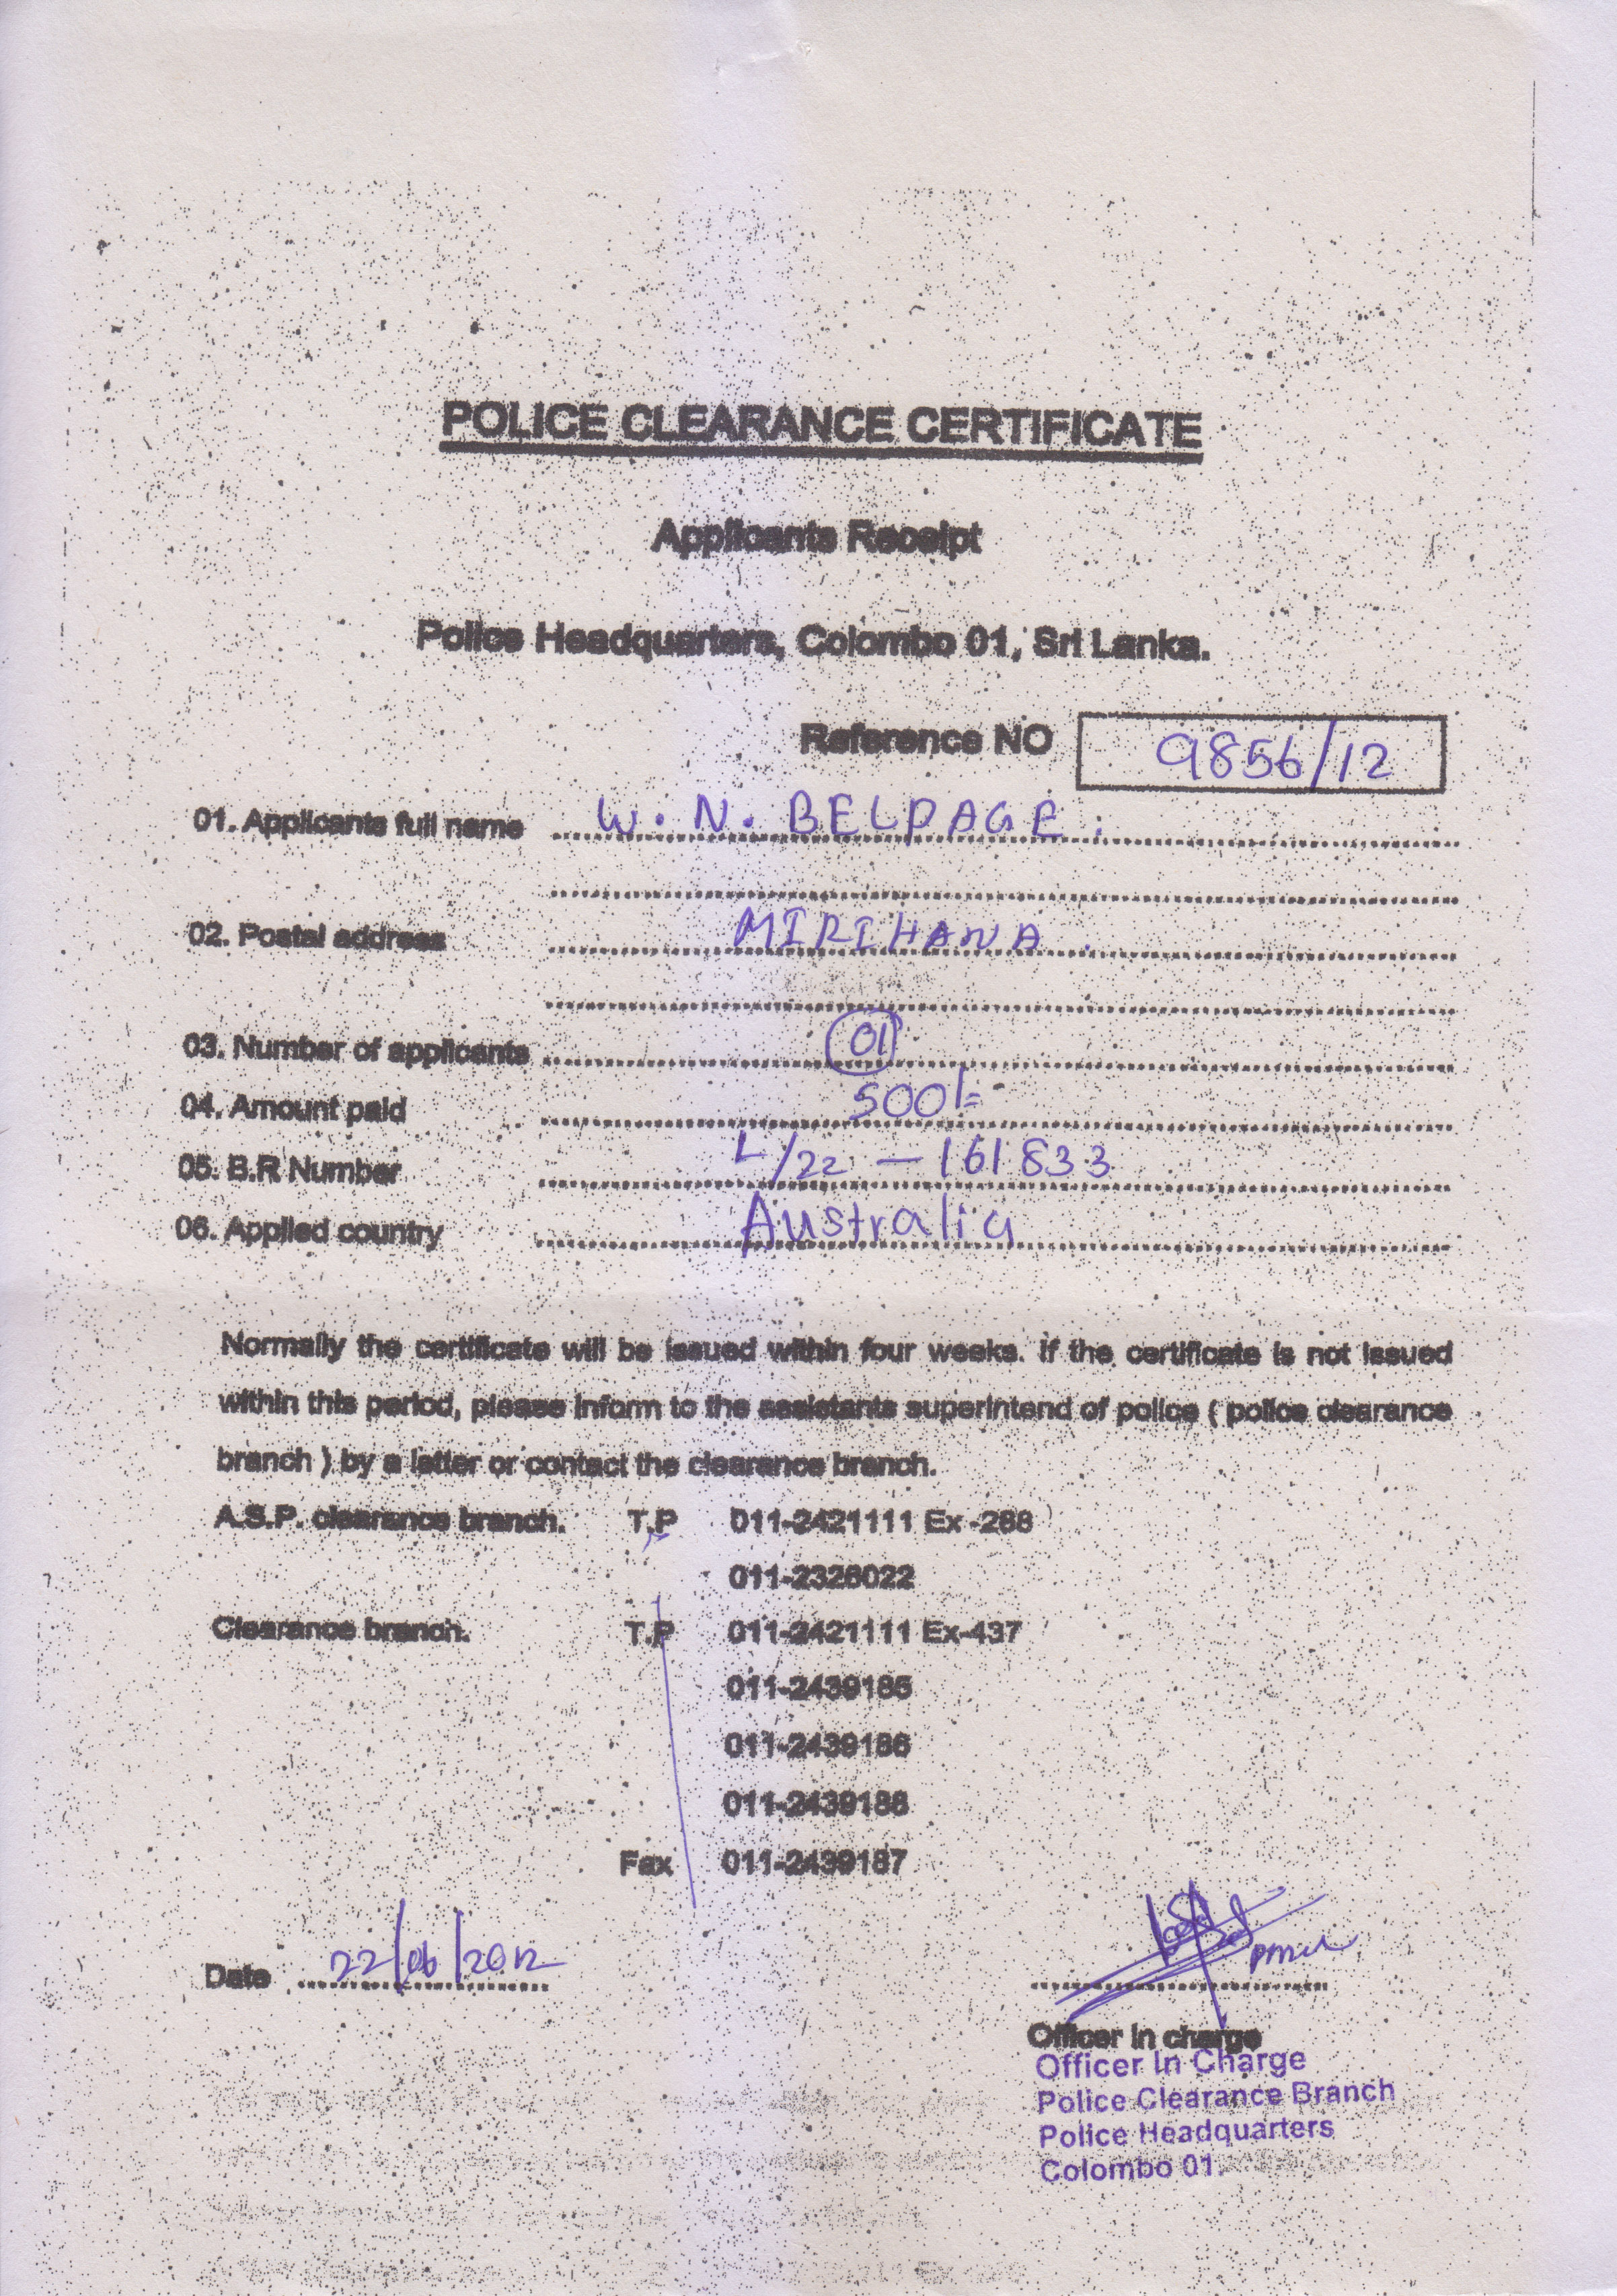 POLICE CLEARANCE CERTIFICATE
Applicants Receipt
Police Headquarters, Colombo 01, Sri Lanka.
Reference NO 9856/12
01. Applicants full name W. N. BELPAGE.
02. Postal address MIRIHANA.
03. Number of applicants 01
04. Amount paid 500/=
05. B.R Number L/22 - 161833
06. Applied country Australia
Normally the certificate will be issued within four weeks. If the certificate is not issued
within this period, please inform to the assistants superintend of police ( police clearance
branch ) by a letter or contact the clearance branch.
A.S.P. clearance branch. T.P 011-2421111 Ex -288
011-2326022
Clearance branch. T.P 011-2421111 Ex-437
011-2439185
011-2439186
011-2439188
Fax 011-2439187
Date 22/06/2012
Officer in charge
Officer In Charge
Police Clearance Branch
Police Headquarters
Colombo 01.